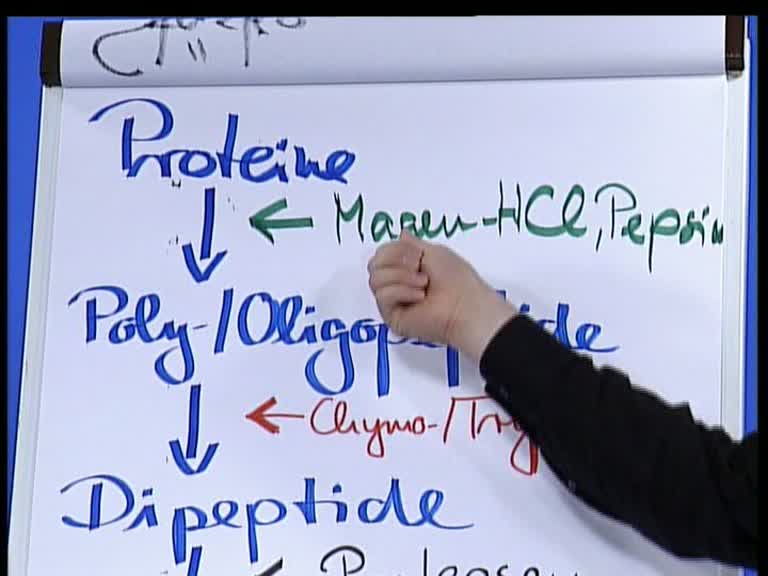 Proteine
← Magen-HCl, Pepsin
Poly-/Oligopeptide
← Chymo-/Try
Dipeptide